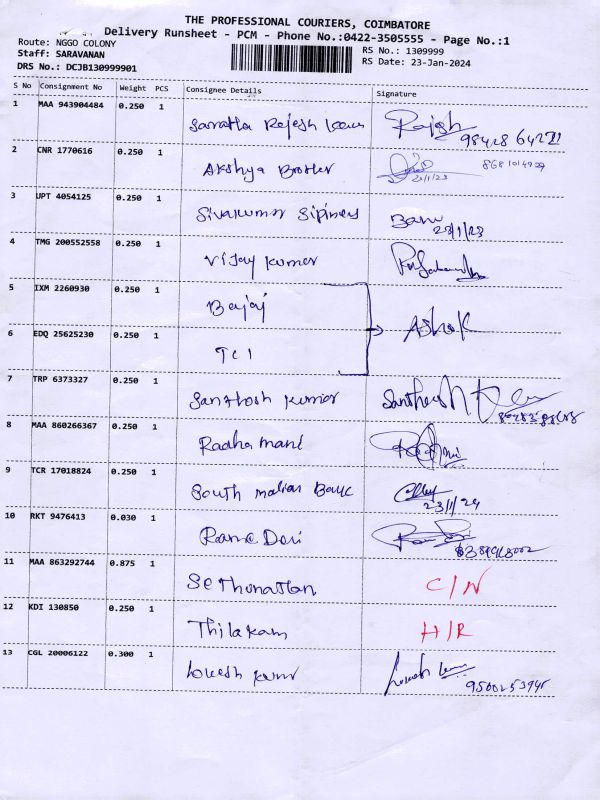 THE PROFESSIONAL COURIERS, COIMBATORE
Delivery Runsheet - PCM - Phone No.:0422-3505555 - Page No.:1
Route: NGGO COLONY RS No.: 1309999
Staff: SARAVANAN RS Date: 23-Jan-2024
DRS No.: DCJB130999901
S No Consignment No Weight PCS Consignee Details Signature
1 MAA 943904484 0.250 1
Rajesh
2 CNR 1770616 0.250 1
Akshya
3 UPT 4054125 0.250 1
Sivakumar
23/1/23
4 TMG 200552558 0.250 1
Vijay Kumar
5 IXM 2260930 0.250 1
Bajaj
Ashok
6 EDQ 25625230 0.250 1
TCI
7 TRP 6373327 0.250 1
Santhosh Kumar
8 MAA 860266367 0.250 1
Radhamani
9 TCR 17018824 0.250 1
South
23/1/24
10 RKT 9476413 0.030 1
Rama Devi
11 MAA 863292744 0.875 1
C/N
12 KDI 130850 0.250 1
Thilakam H/R
13 CGL 20006122 0.300 1